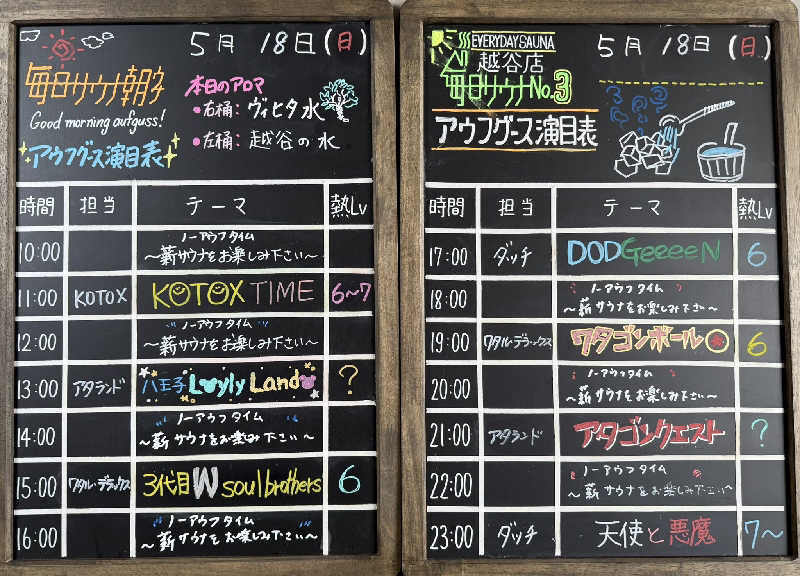 5月 18日(日)
毎日サウナ朝会
Good morning aufguss!
アウフグース演目表
本日のアロマ
•右桶: ヴィヒタ水
•左桶: 越谷の水
時間 担当 テーマ 熱Lv
10:00 ノーアウフタイム
〜薪サウナをお楽しみ下さい〜
11:00 KOTOX KOTOX TIME 6〜7
12:00 ノーアウフタイム
〜薪サウナをお楽しみ下さい〜
13:00 アタランド 八王子 Loyly Land ?
14:00 ノーアウフタイム
〜薪サウナをお楽しみ下さい〜
15:00 ワタル・デラックス 3代目W soul brothers 6
16:00 ノーアウフタイム
〜薪サウナをお楽しみ下さい〜
EVERYDAY SAUNA
越谷店
毎日サウナNo.3
アウフグース演目表
5月 18日(日)
時間 担当 テーマ 熱Lv
17:00 ダッチ DODGeeeeN 6
18:00 ノーアウフタイム
〜薪サウナをお楽しみ下さい〜
19:00 ワタル・デラックス ワタゴンボール 6
20:00 ノーアウフタイム
〜薪サウナをお楽しみ下さい〜
21:00 アタランド アタゴンクエスト ?
22:00 ノーアウフタイム
〜薪サウナをお楽しみ下さい〜
23:00 ダッチ 天使と悪魔 7〜